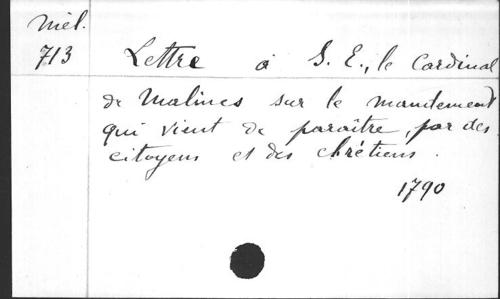 Mél.
713 Lettre à S. E., le Cardinal
de Malines sur le mandement
qui vient de paraître, par des
citoyens et des chrétiens.
1790